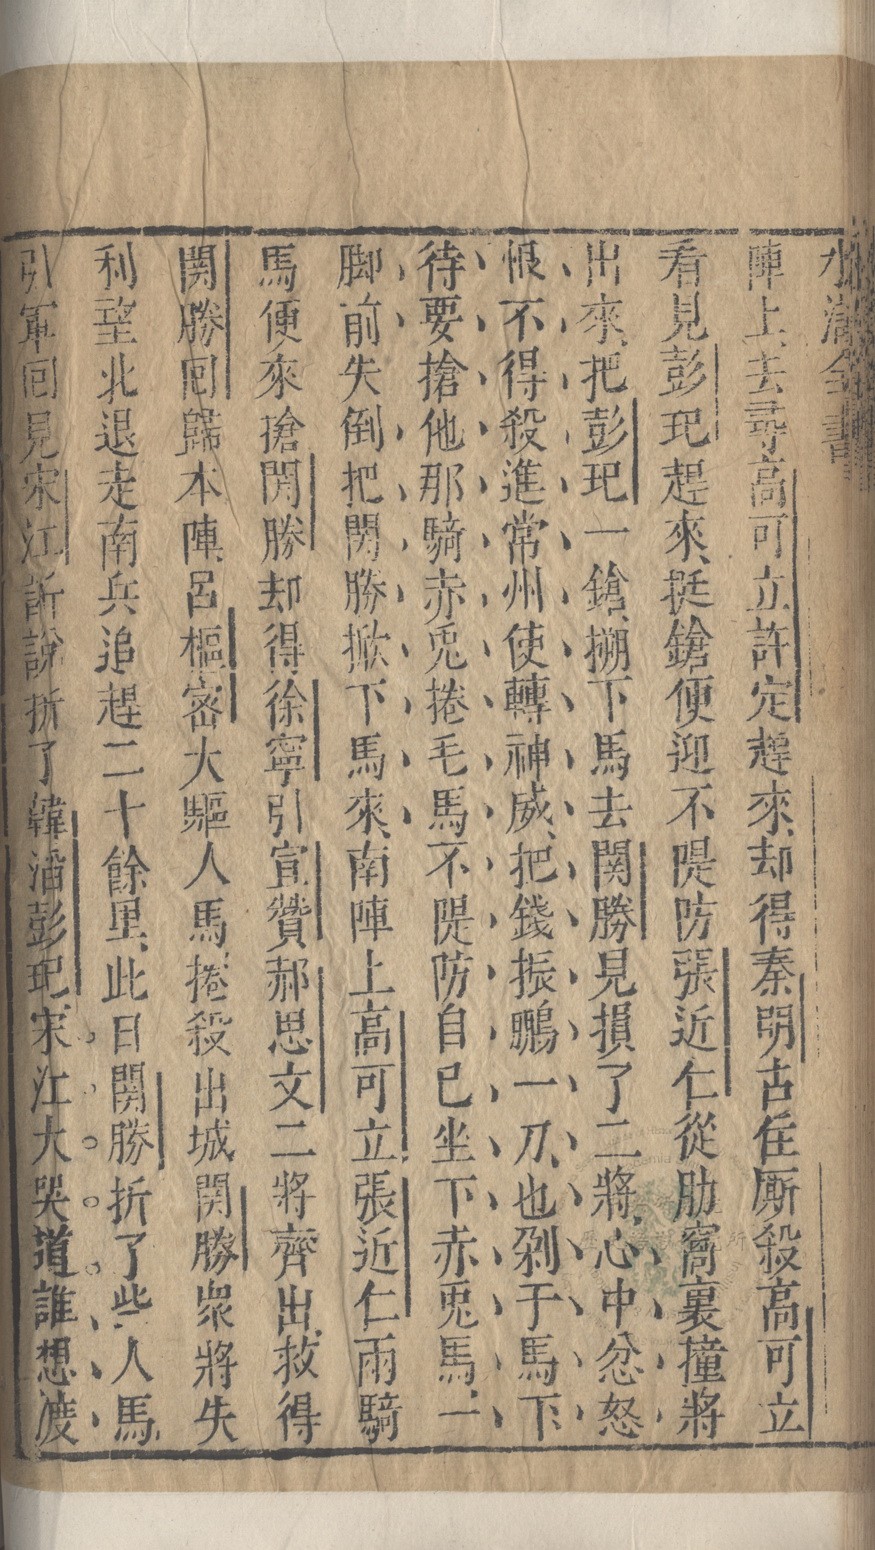 水滸全書
陣上去尋高可立許定趕來却得秦明古住厮殺高可立
看見彭玘趕來挺鎗便迎不隄防張近仁從肋窩裏撞將
出來把彭玘一鎗搠下馬去関勝見損了二將心中忿怒
恨不得殺進常州使轉神威把錢振鵬一刀也剁于馬下
待要搶他那騎赤兎捲毛馬不隄防自己坐下赤兎馬一
脚前失倒把関勝掀下馬來南陣上高可立張近仁兩騎
馬便來搶関勝却得徐寧引宣贊郝思文二將齊出救得
関勝囘歸本陣呂樞密大驅人馬捲殺出城関勝衆將失
利望北退走南兵追趕二十餘里此日関勝折了些人馬
引軍囘見宋江訴說折了韓滔彭玘宋江大哭道誰想渡